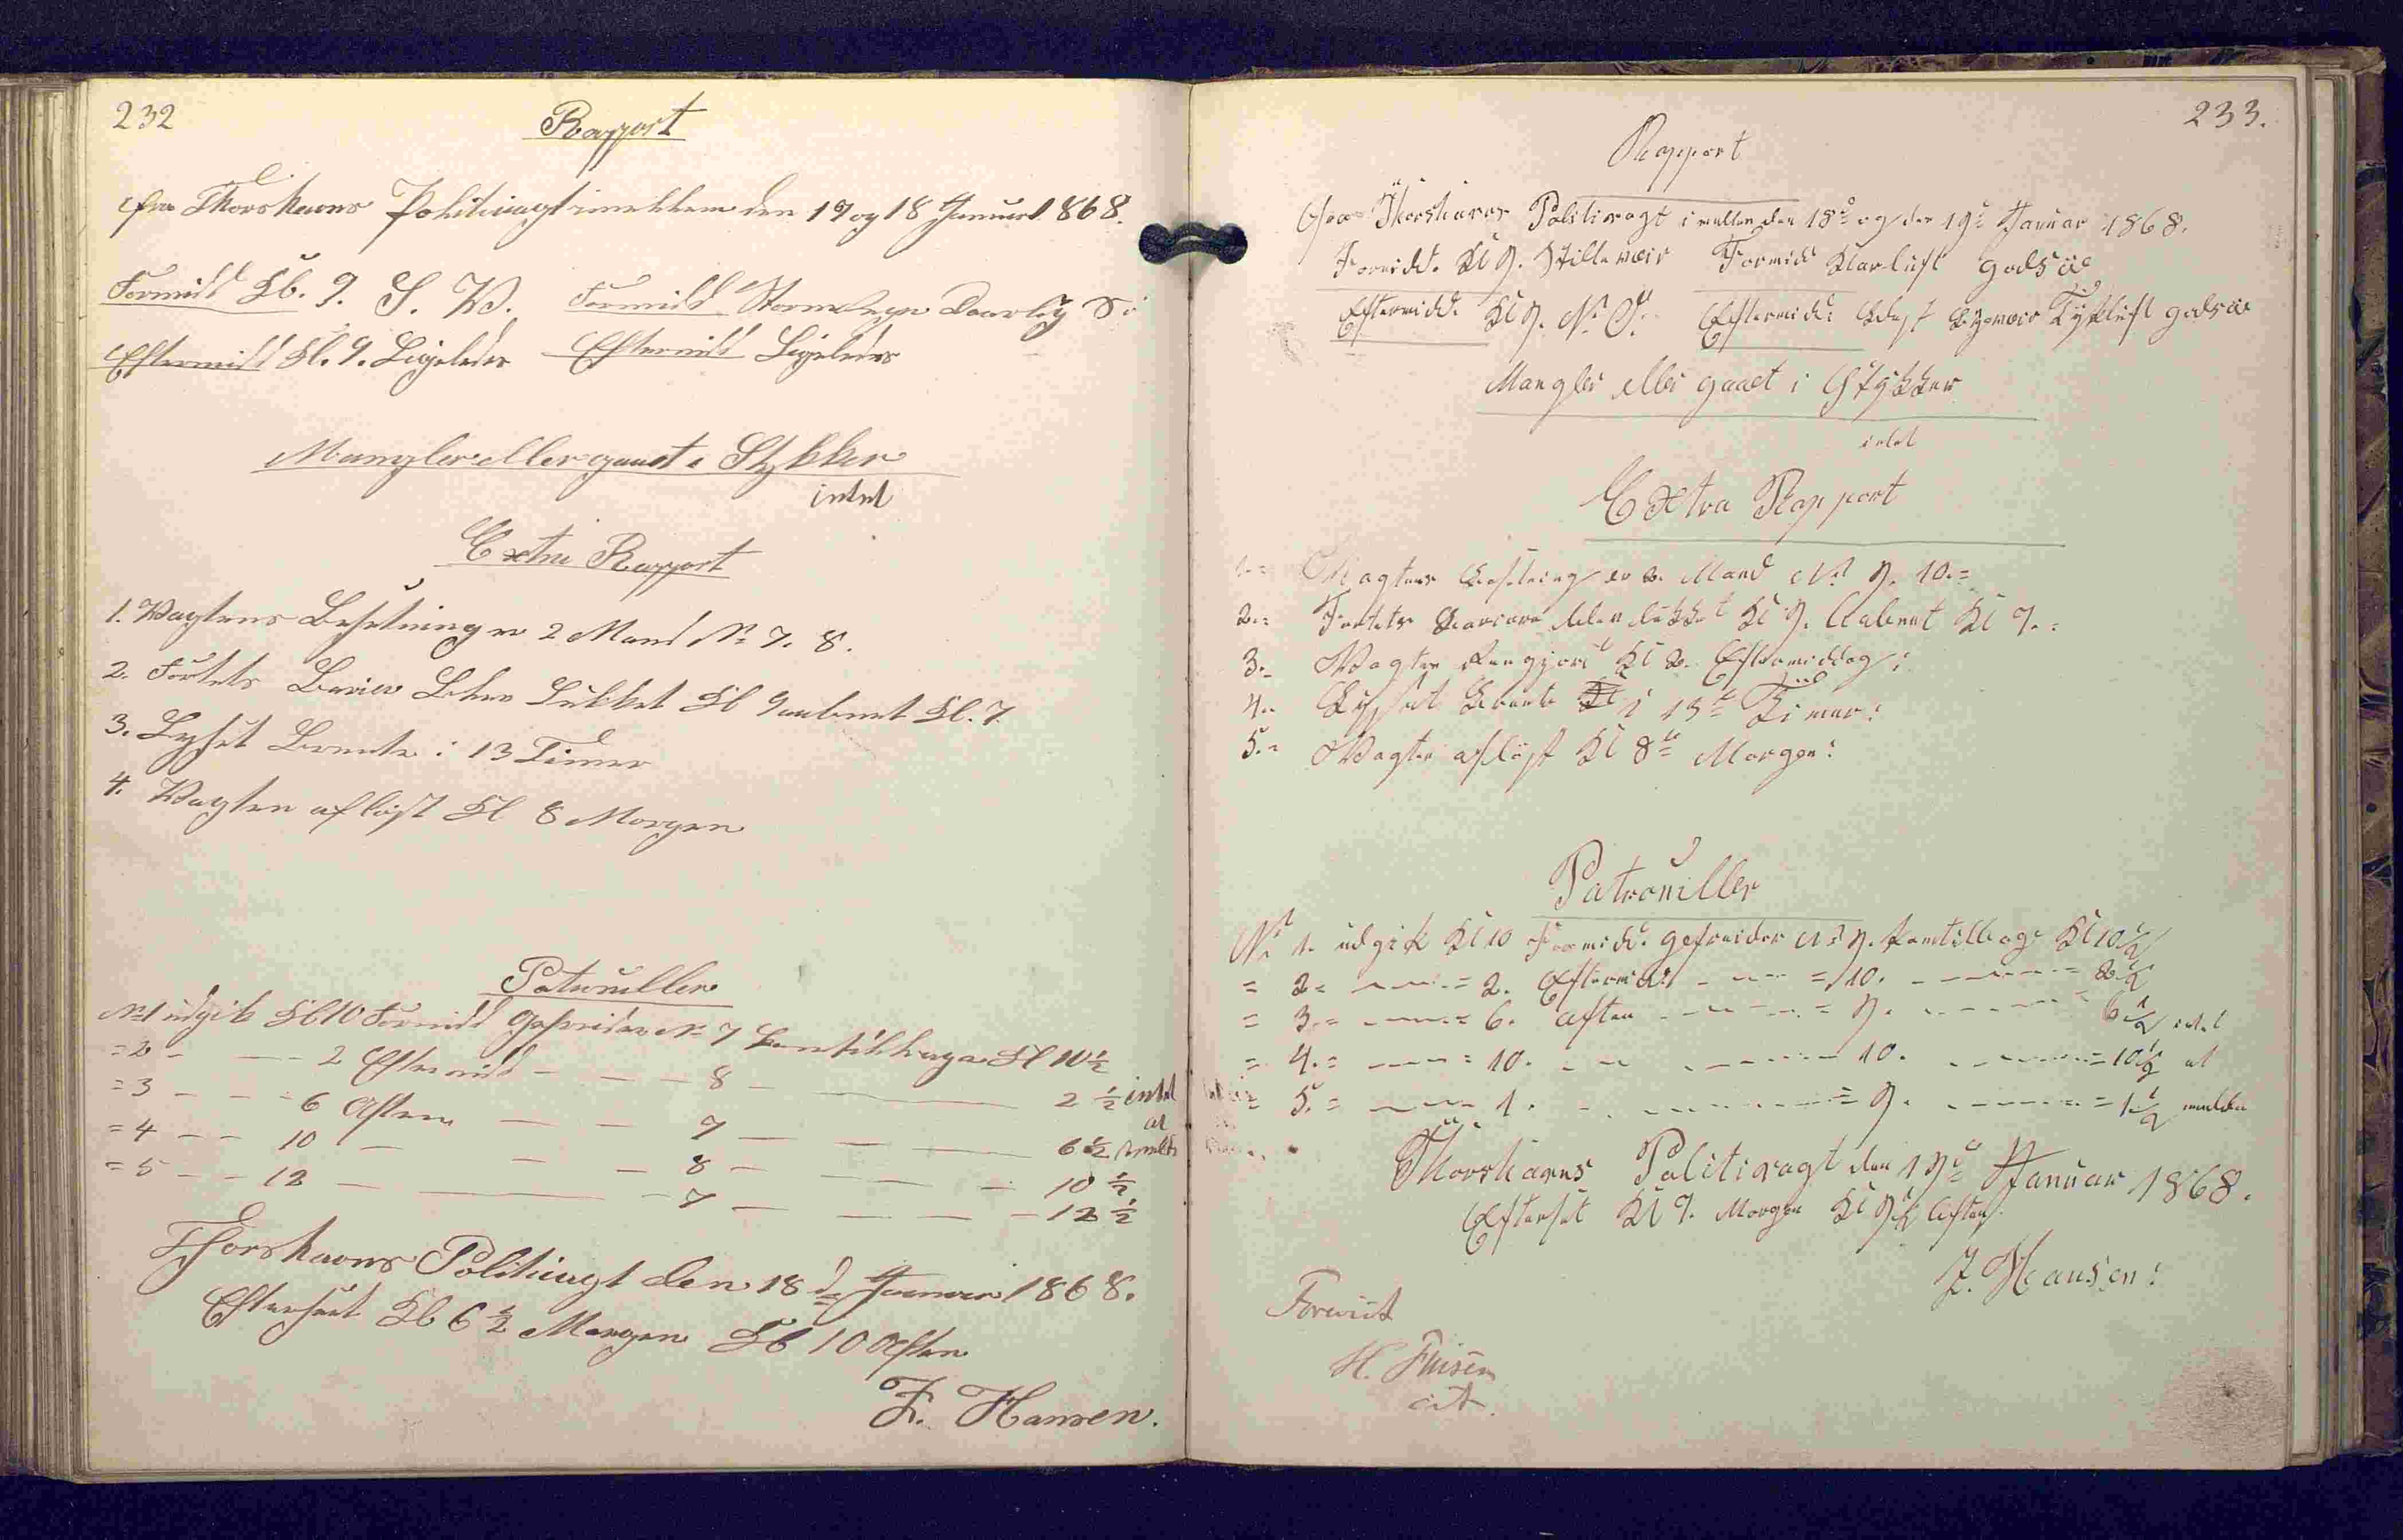 232
Rapport
fra Thorshavns Politivagt imellem den 17 og 18 Januar 1868.
Formidd Kl. 9. S. V. Formidd Storm Regn Daarlig Sö
Eftermidd Kl. 9. Ligeledes Eftermidd Ligeledes
Mangler eller gaaet i Stykker
intet
Extra Rapport
1. Vagtens Besetning er 2 Mand No 7. 8.
2. Fortets Barier Blev Lukket Kl 9 aabnet Kl. 7.
3. Lyset Brente i 13 Timer
4. Vagten aflöst Kl 8 Morgen
Patruller
No 1 udgik Kl 10 Formidd Gefreider No 7 kom tilbage Kl 10½
= 2 - - - 2 Eftermidd - - - 8 - - 2½ intet
= 3 - - - 6 Aften - - 7 - - - 6½ at melde
= 4 - - 10 - - - 8 - - - 10½
= 5 - - 12 - - - 7 - - - 12½
Thorshavns Politivagt den 18de Januar 1868.
Efterseet Kl 6½ Morgen Kl 10 Aften
F. Hansen.
233.
Rapport
Fra Thorshavns Politivagt imellem den 18de og den 19de Januar 1868.
Formidd. Kl 9. Stille veir Formidd Klar luft god Söe
Eftermidd. Kl 9. N. O. Eftermidd: Tyk luft god Söe
Mangler eller gaaet i Stykker
intet
Extra Rapport
1.= Vagtens Besetning er 2. Mand No 9. 10.=
2.= Fortets Bariere blev lukket Kl 9. Aabnet Kl 7.=
3.- Vagten Rengjort Kl 2. Eftermiddag:
4.- Lyset brente i 13te Timer:
5.- Vagten aflöst Kl 8te Morgen:
Patrouiller
No 1. udgik Kl 10 Formidd. gefreider No 9. kom tilbage Kl 10½
= 2= - - = 2. Eftermidd: - - = 10. - - - = 2½
= 3.= - - = 6. Aften - - - = 9. - - - 6½ intet
= 4.= - - = 10. - - - - 10. - - - = 10½ at
= 5.= - - 1. - - - - = 9. - - - = 1½ melde
Thorshavns Politivagt den 19de Januar 1868.
Efterset Kl 7. Morgen Kl 9½ Aften.
J. Hansen:
Foreviist
H. Finsen
cst.